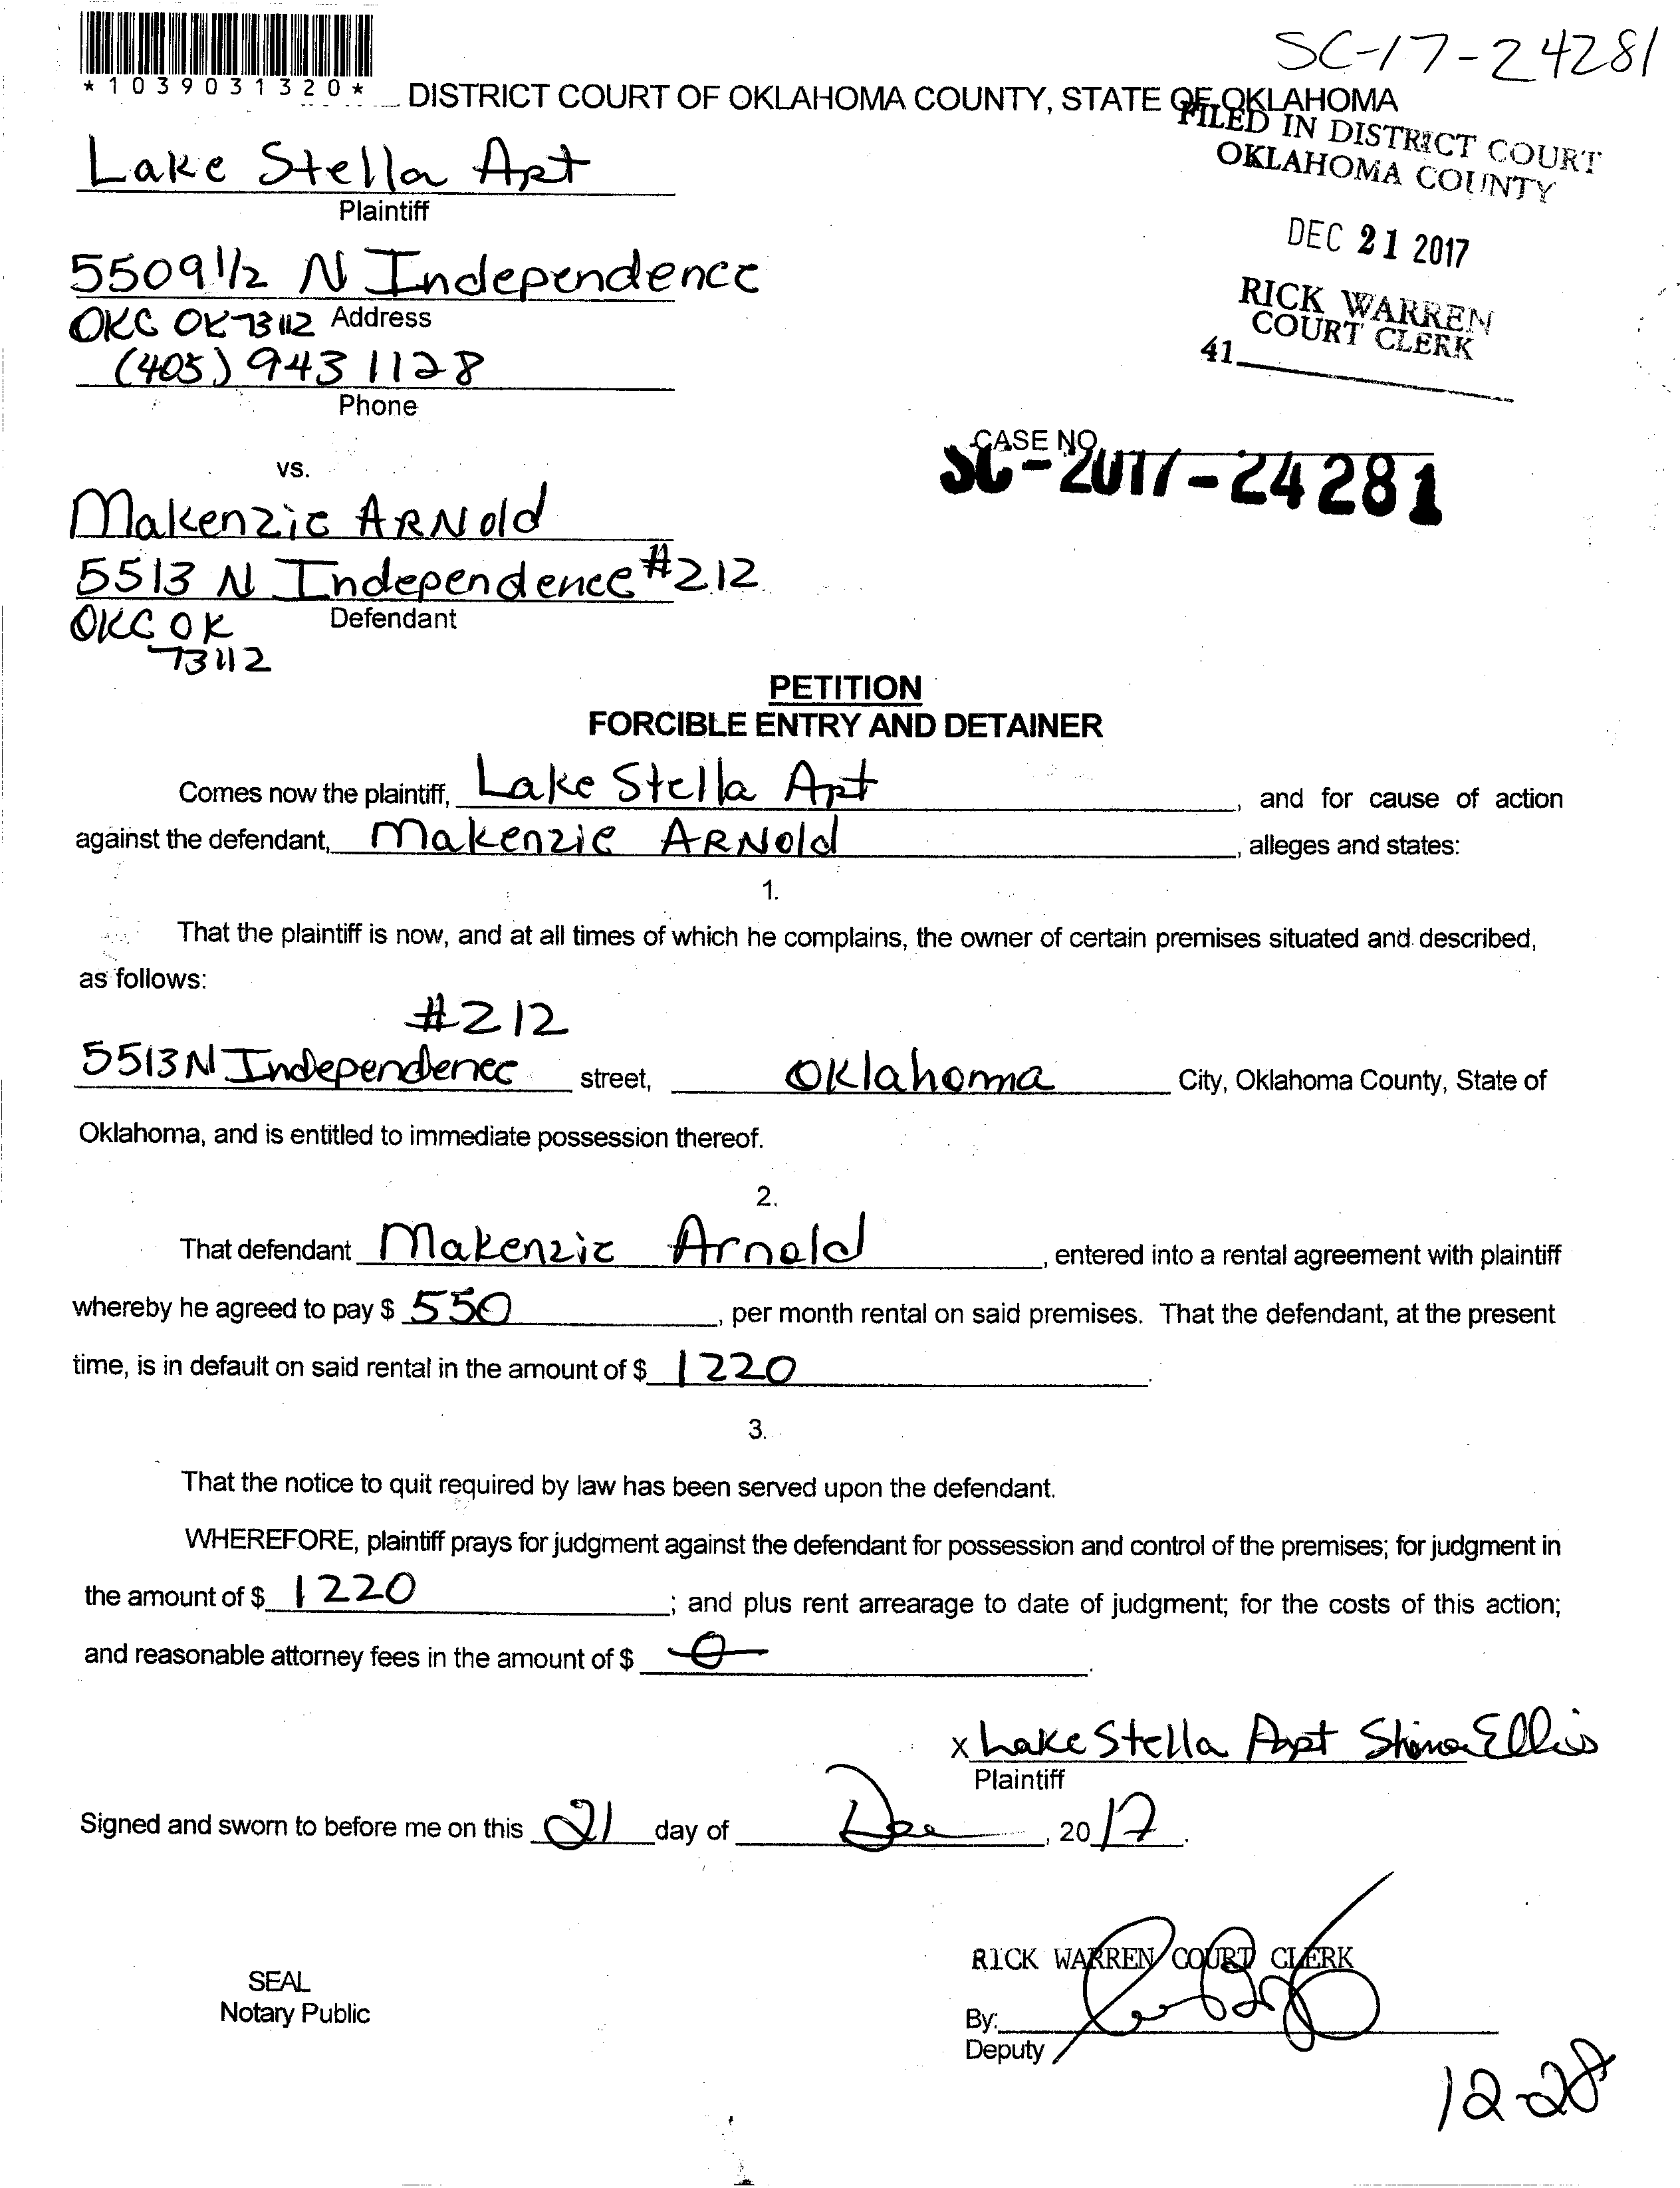 SC-17-24281
*1039031320*
DISTRICT COURT OF OKLAHOMA COUNTY, STATE OF OKLAHOMA
FILED IN DISTRICT COURT
OKLAHOMA COUNTY
Lake Stella Apt
Plaintiff
DEC 21 2017
5509 1/2 N Independence
RICK WARREN
COURT CLERK
OKC OK 73112 Address
41
(405) 943 1128
Phone
CASE NO.
SC-2017-24281
vs.
Makenzie ARNold
5513 N Independence #212
OKC OK Defendant
73112
PETITION
FORCIBLE ENTRY AND DETAINER
Comes now the plaintiff, Lake Stella Apt, and for cause of action
against the defendant, Makenzie ARNold, alleges and states:
1.
That the plaintiff is now, and at all times of which he complains, the owner of certain premises situated and described,
as follows:
#212
5513 N Independence street, Oklahoma City, Oklahoma County, State of
Oklahoma, and is entitled to immediate possession thereof.
2.
That defendant Makenzie Arnold, entered into a rental agreement with plaintiff
whereby he agreed to pay $ 550, per month rental on said premises. That the defendant, at the present
time, is in default on said rental in the amount of $ 1220.
3.
That the notice to quit required by law has been served upon the defendant.
WHEREFORE, plaintiff prays for judgment against the defendant for possession and control of the premises; for judgment in
the amount of $ 1220; and plus rent arrearage to date of judgment; for the costs of this action;
and reasonable attorney fees in the amount of $ 0.
x Lake Stella Apt Ellis
Plaintiff
Signed and sworn to before me on this 21 day of Dec, 2017.
RICK WARREN COURT CLERK
SEAL
Notary Public
By:
Deputy
12-28